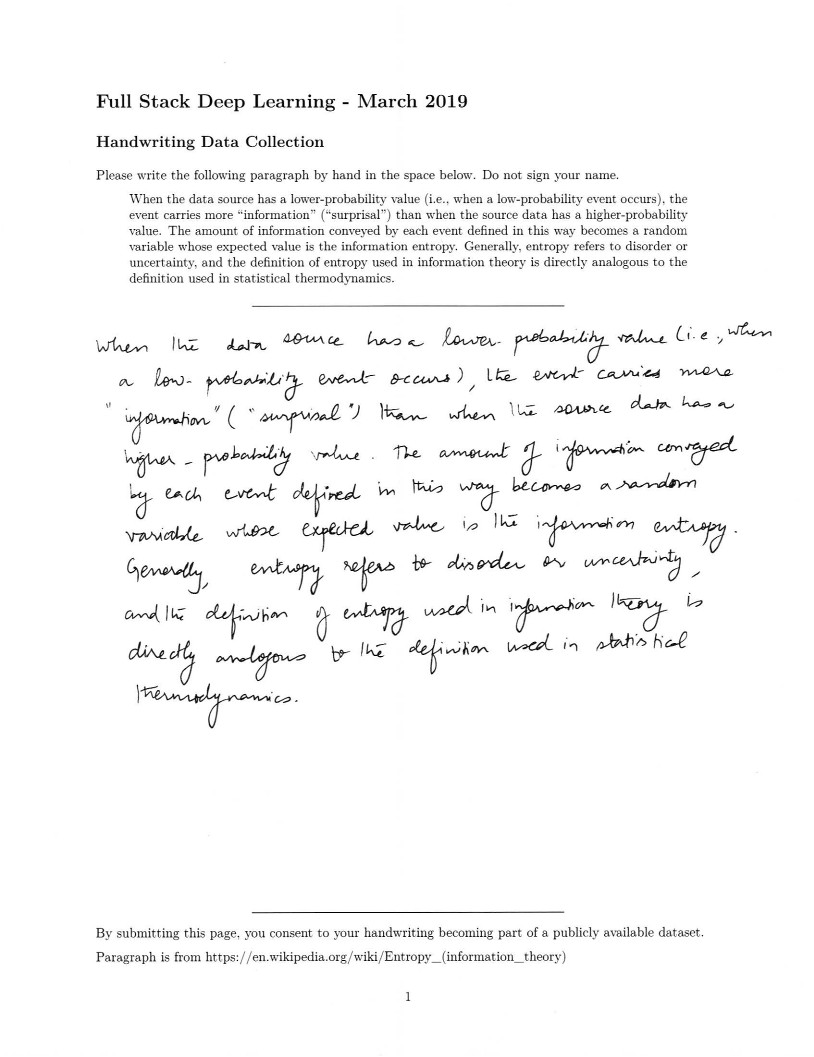 Full Stack Deep Learning - March 2019
Handwriting Data Collection
Please write the following paragraph by hand in the space below. Do not sign your name.
When the data source has a lower-probability value (i.e., when a low-probability event occurs), the
event carries more “information” (“surprisal”) than when the source data has a higher-probability
value. The amount of information conveyed by each event defined in this way becomes a random
variable whose expected value is the information entropy. Generally, entropy refers to disorder or
uncertainty, and the definition of entropy used in information theory is directly analogous to the
definition used in statistical thermodynamics.
When the data source has a lower-probability value (i.e., when
a low-probability event occurs), the event carries more
"information" ("surprisal") than when the source data has a
higher-probability value. The amount of information conveyed
by each event defined in this way becomes a random
variable whose expected value is the information entropy.
Generally, entropy refers to disorder or uncertainty,
and the definition of entropy used in information theory is
directly analogous to the definition used in statistical
thermodynamics.
By submitting this page, you consent to your handwriting becoming part of a publicly available dataset.
Paragraph is from https://en.wikipedia.org/wiki/Entropy_(information_theory)
1